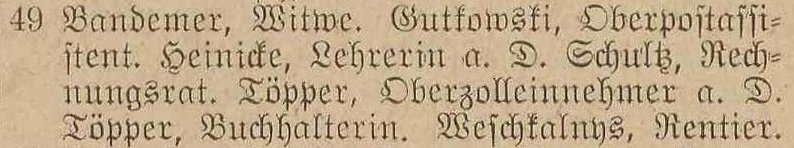 49 Bandemer, Witwe. Gutkowski, Oberpostassi=
stent. Heinicke, Lehrerin a. D. Schultz, Rech=
nungsrat. Töpper, Oberzolleinnehmer a. D.
Töpper, Buchhalterin. Weschkalnys, Rentier.